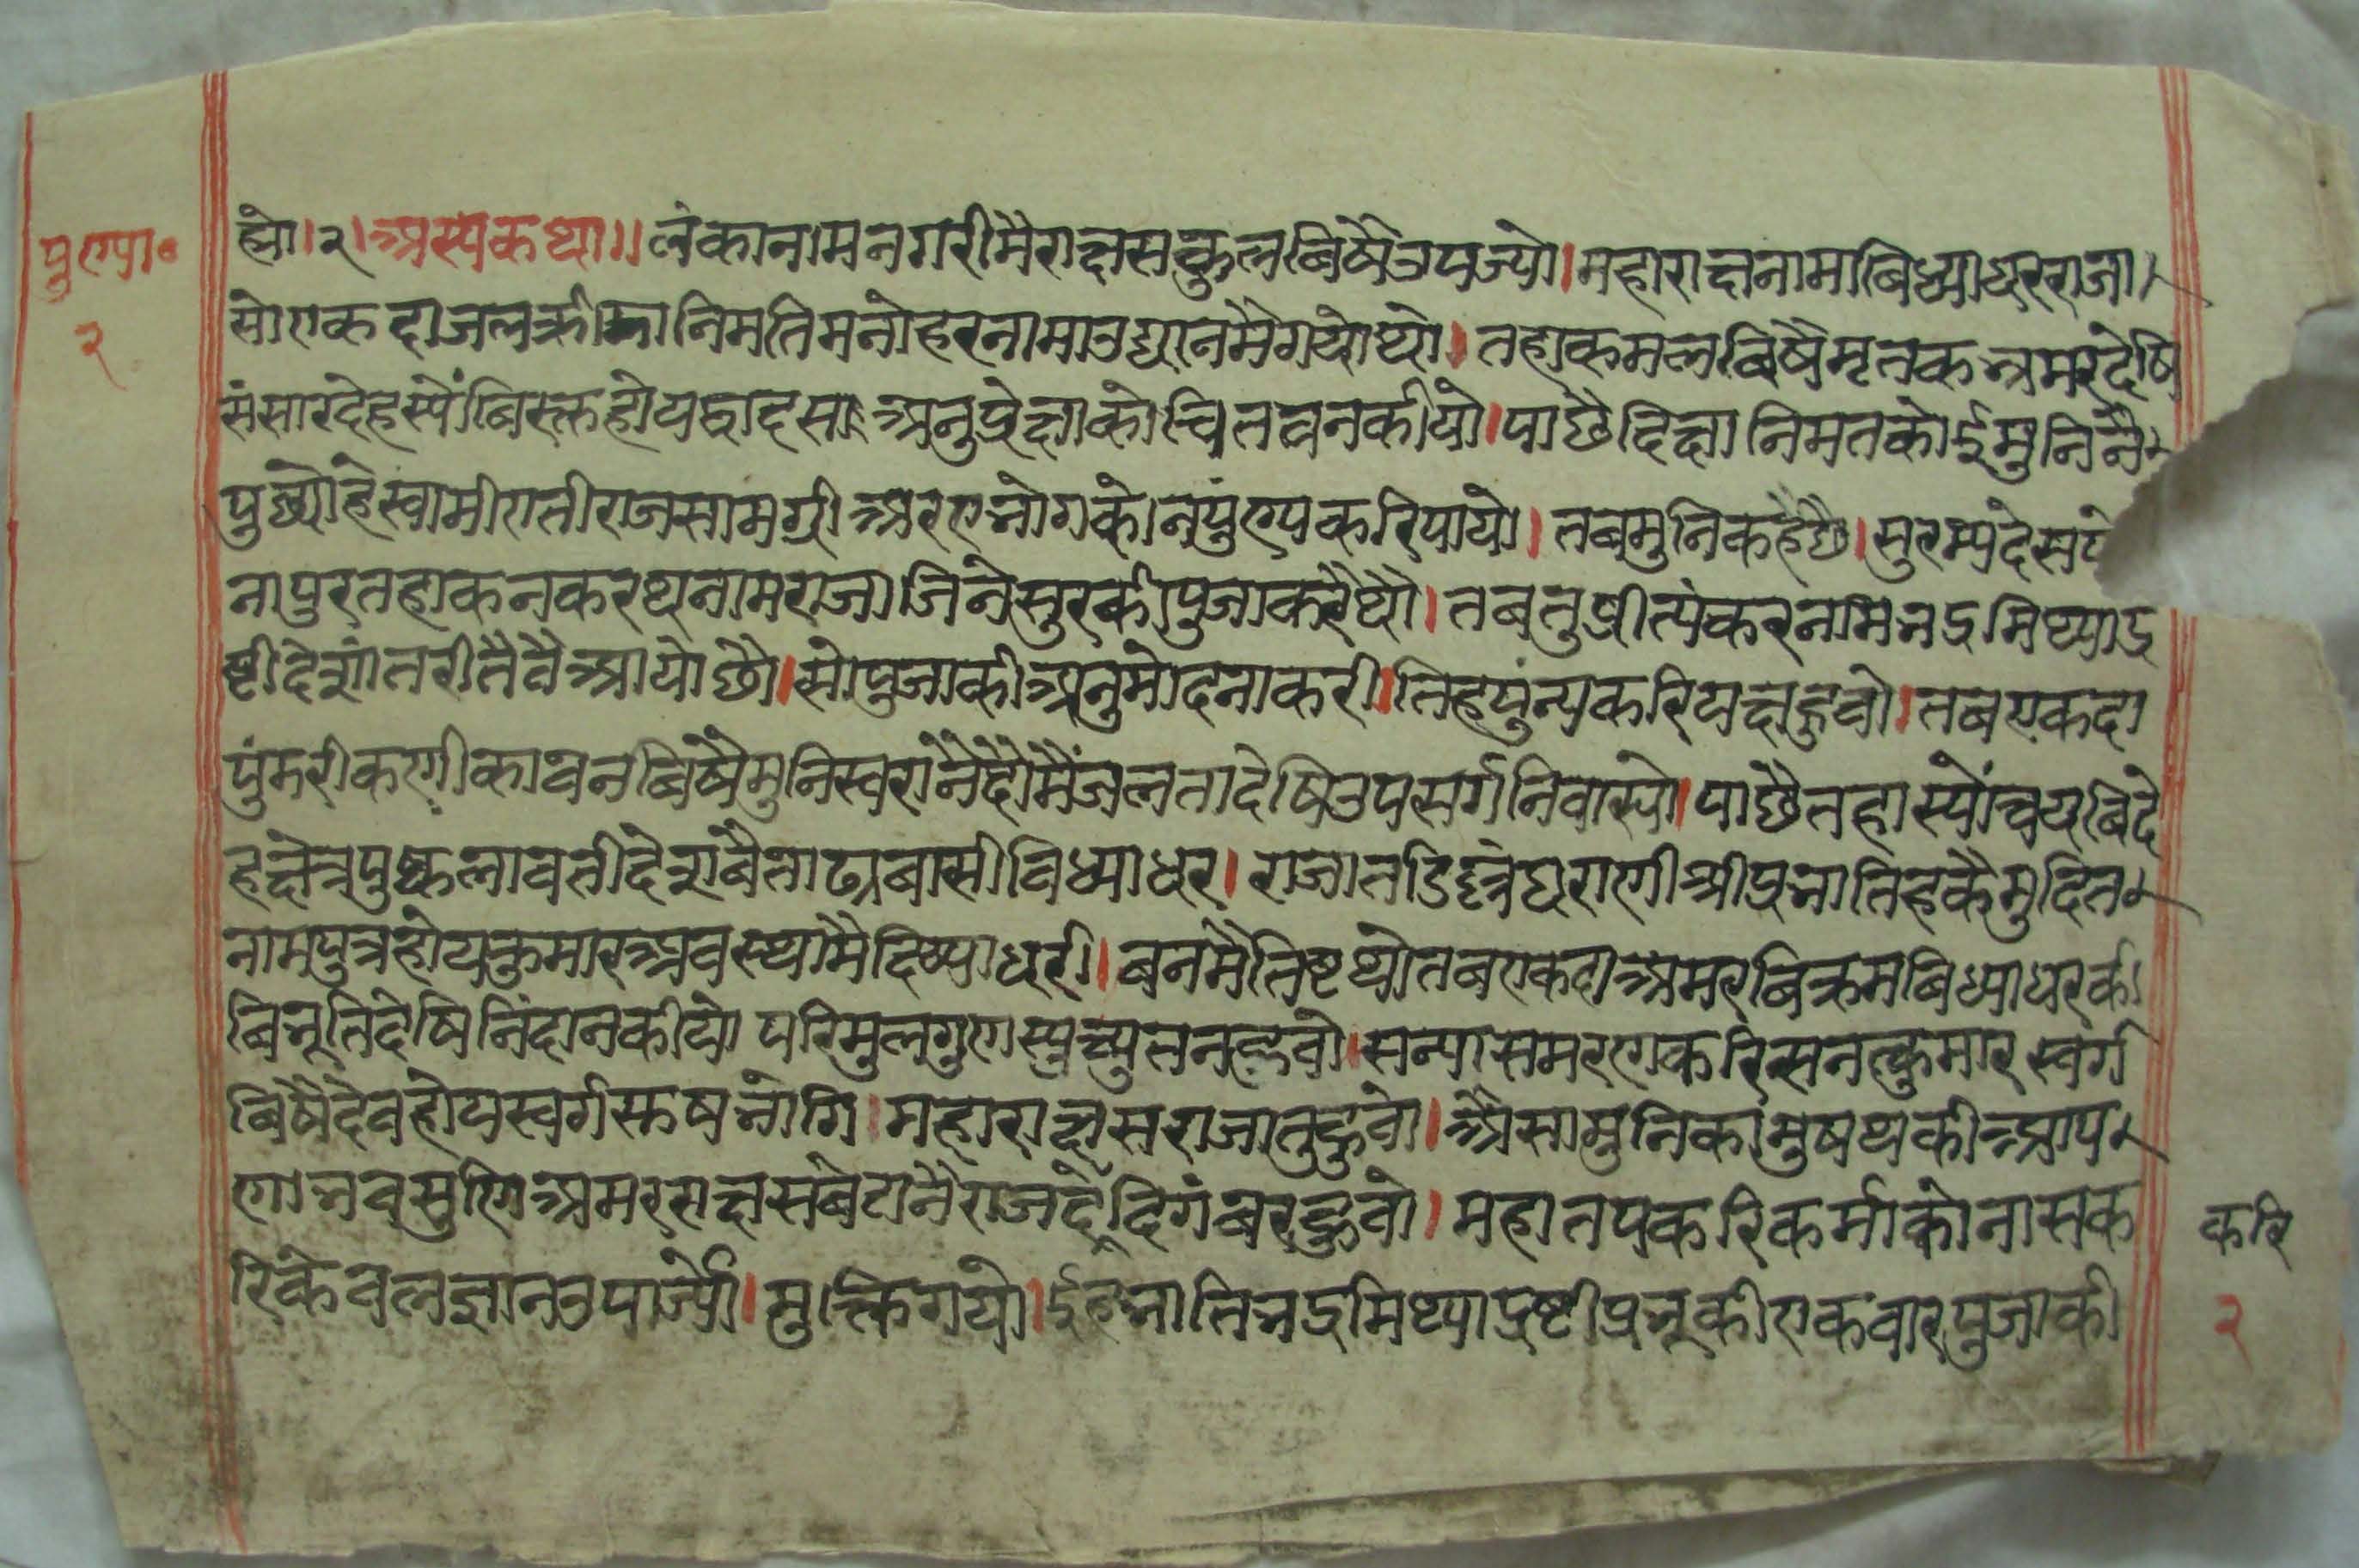 पुण्या॰
२
ह्यो।२। अस्यकथा॥ लंकानामनगरीमैराक्षसकुलबिषैउपज्यो। महाराक्षनामाबिध्याधरराजा।
सोएकदाजलक्रीडानिमतिमनोहरनामाउद्यानमैगयोथो। तहाकमलबिषैमृतकभ्रमरदेषि
संसारदेहस्यौंबिरक्तहोयद्वादसाअनुप्रेक्षाकोचितवनकीयो। पाछैदिक्षानिमतकोईमुनिनै
पुछ्योहेस्वामीएतीराजसामग्रीअरएभोगकोनपुंण्यकरिपायो। तबमुनिकहैछै। सुरम्यदेसपो
नापुरतहाकनकरथनामराजाजिनेसुरकीपुजाकरैथो। तबतुप्रीत्यंकरनामभद्रमिथ्याद्र
ष्टीदेशांतरीतैवैआयोछौ। सोपुजाकीअनुमोदनाकरी। तिहपुंन्यकरियक्षहुवो। तबएकदा
पुंमरीकणीकावनबिषैमुनिस्वरांनैदौमैंजलतादेषिउपसर्गनिवास्यो। पाछैतहास्यौंचयबिदे
हक्षेत्रपुष्कलावतीदेशबैताढ्यबासीविध्याधर। राजातडिद्दंघराणीश्रीप्रभातिहकैमुदित
नामपुत्रहोयकुमारअवस्थामैदिष्याधरी। बनमैतिष्टथोतबएकदाअमरबिक्रमबिध्याधरकी
बिभूतिदेषिनिंदानकीयो परिमुलगुणस्युच्युतनहुवो। सन्यासमरणकरिसनत्कुमारस्वर्ग
बिषैदेवहोयस्वर्गसुषभोगि। महाराक्षसराजातुहुवो। अैसामुनिकामुषथकीआप
णाभवसुणिअमरराक्षसबेटानैराजदे। दिगंबरहुवो। महातपकरिकर्माकोनासक
रिकेवलज्ञानउपार्ज्यो। मुक्तिगयो। ईहभातिभद्रमिथ्याद्रष्टीप्रभूकीएकवारपुजाकी
करि
२